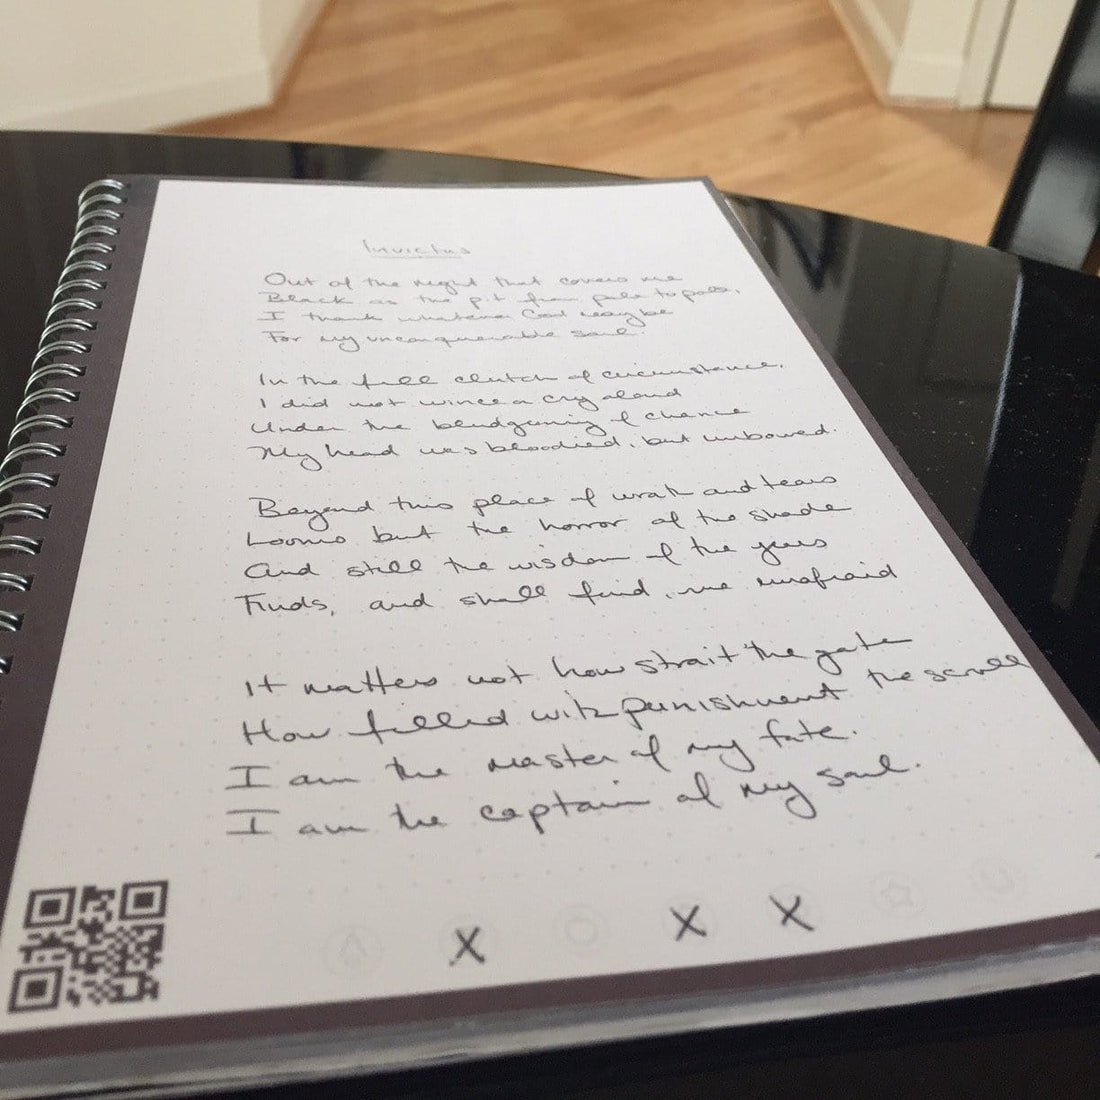 Invictus
Out of the night that covers me
Black as the pit from pole to pole,
I thank whatever God may be
For my unconquerable soul
In the fell clutch of circumstance,
I did not wince a cry aloud
Under the bludgeoning of chance
My head was bloodied, but unbowed.
Beyond this place of wrath and tears
Looms but the horror of the shade
And still the wisdom of the years
Finds, and shall find, me unafraid
It matters not how strait the gate
How filled with punishment the scroll
I am the master of my fate.
I am the captain of my soul.
X X X